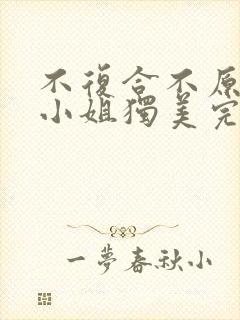 不復合不原
小姐獨美完
一夢春秋小